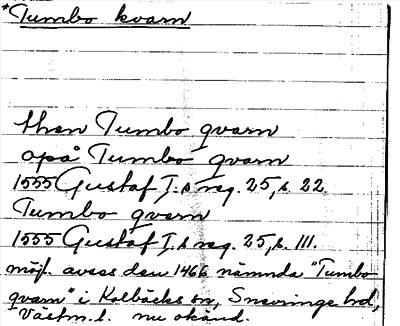 *Tumbo kvarn
then Tumbo qvarn
opå Tumbo qvarn
1555 Gustaf I.s reg. 25, s. 22
Tumbo qvarn
1555 Gustaf I.s reg. 25, s. 111.
möjl. avses den 1466 nämnda "Tumbo
qvarn" i Kolbäcks sn, Snevringe hd,
Västm. l. nu okänd.